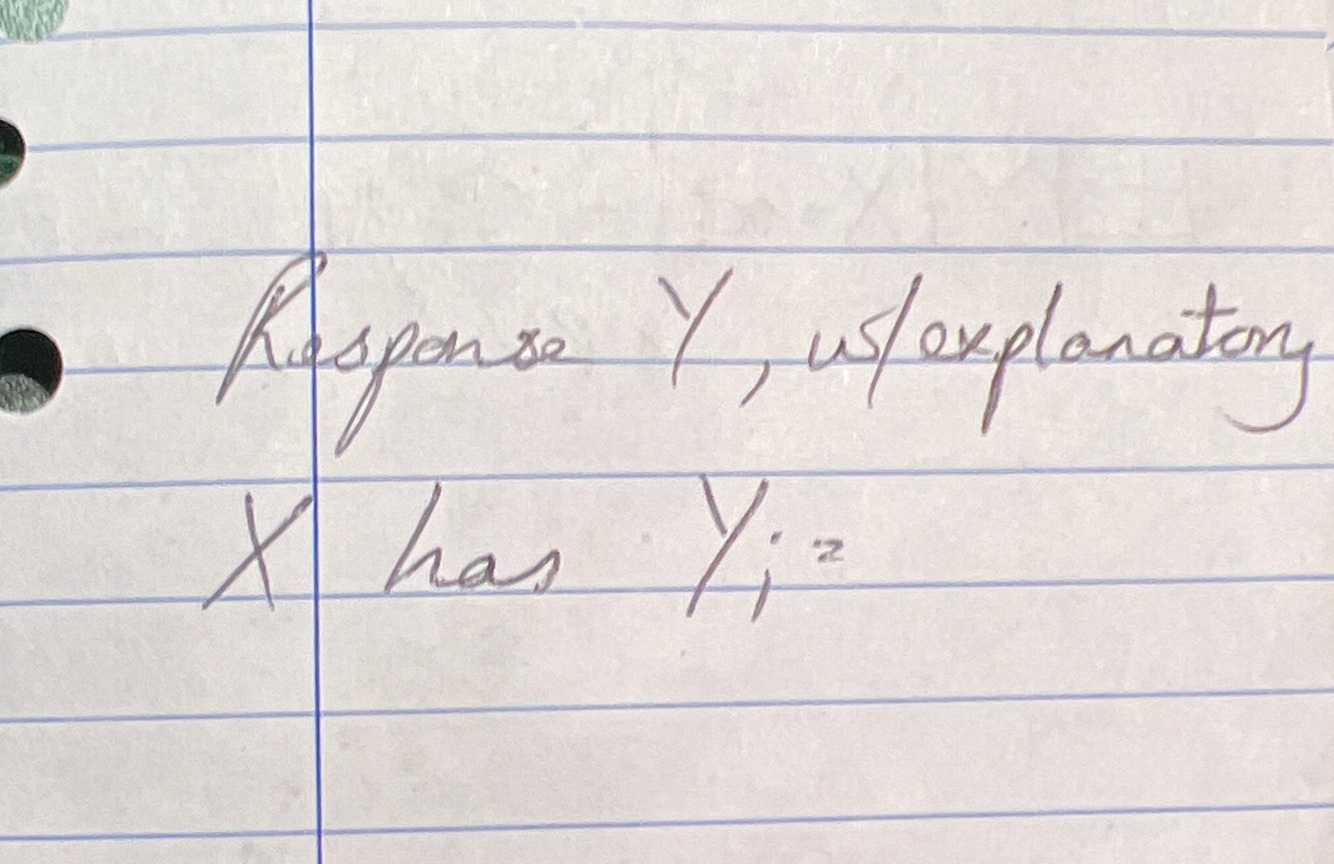 Response Y, w/explanatory
X has Yi =